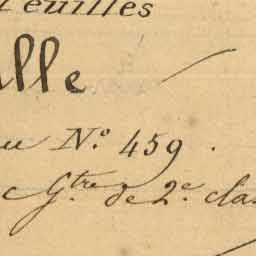 Feuilles
lle
au N.° 459.
c G.tre de 2.e clas